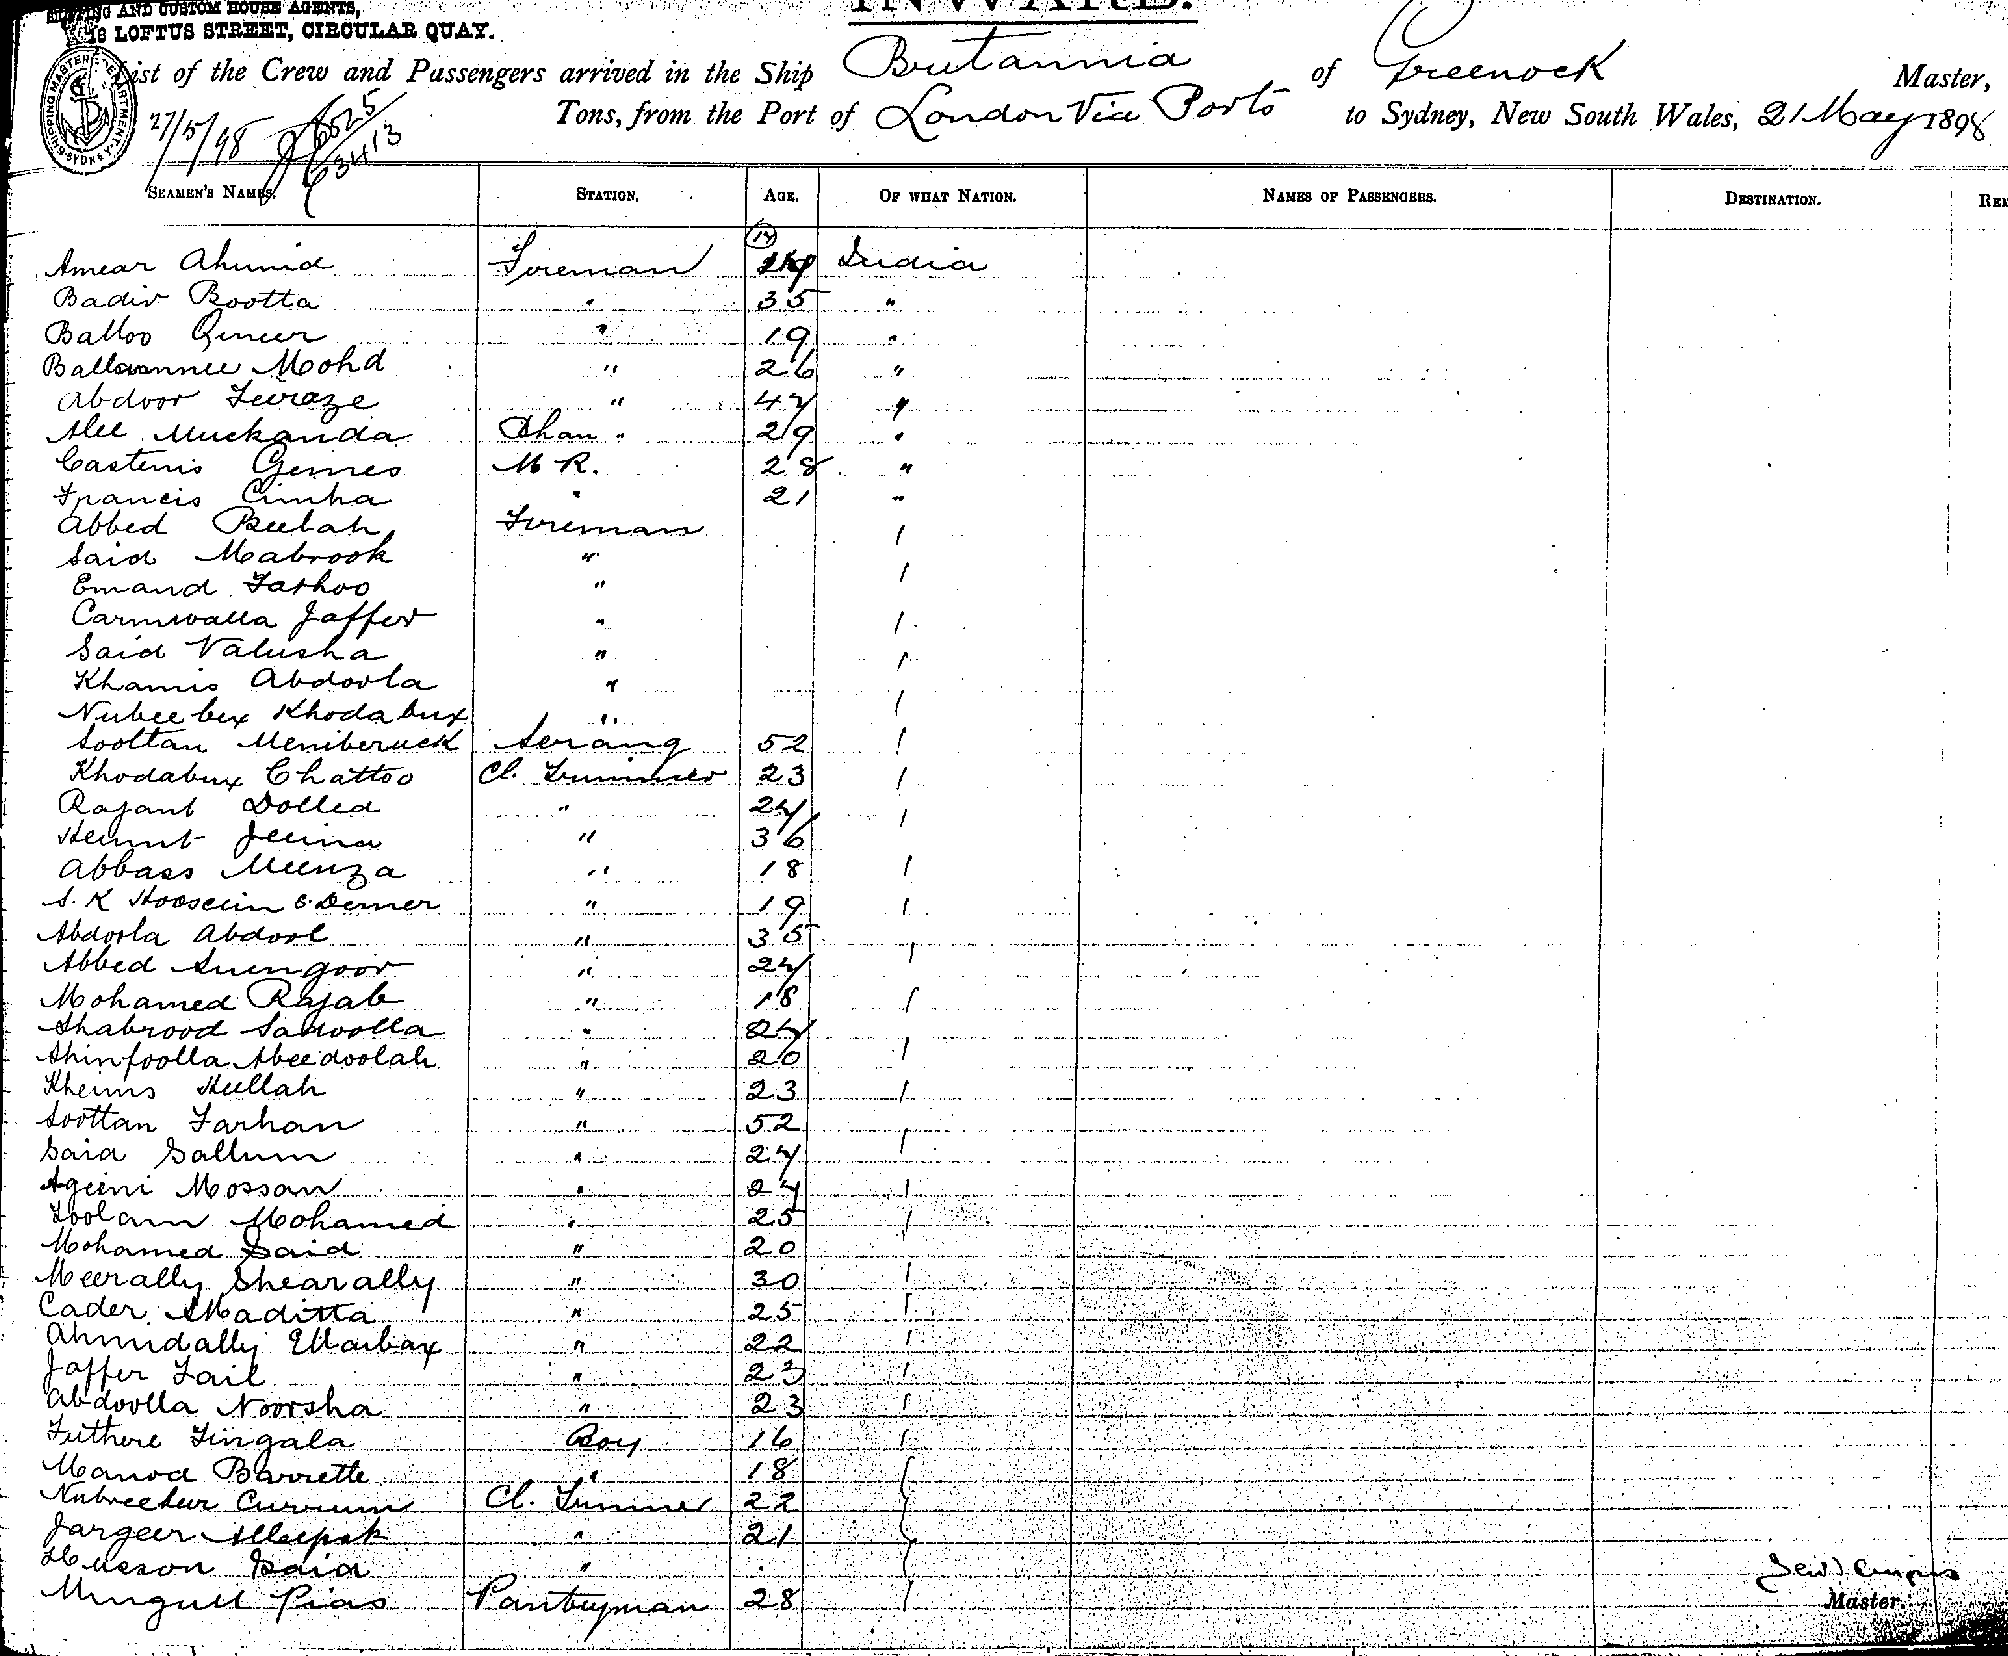 SHIPPING AND CUSTOM HOUSE AGENTS,
18 LOFTUS STREET, CIRCULAR QUAY.
INWARD.
List of the Crew and Passengers arrived in the Ship Britannia of Greenock Master,
Tons, from the Port of London Via Ports to Sydney, New South Wales, 21 May 1898
27/5/98
SEAMEN'S NAMES. STATION. AGE. OF WHAT NATION. NAMES OF PASSENGERS. DESTINATION.
Amear Ahumid Fireman India
Badir Bootta " 35 "
Balloo " 19 "
Mohd " 26 "
Abdoor " 47 "
Alee Muckanda " 29 "
Gomes M R. 28 "
Francis Cunha " 21 "
Abbed Beelah Fireman
Said Mabrook "
Emand "
Carmwalla Jaffer "
Said Valusha "
Khamis Abdoola "
Nubeebux Khodabux "
Sooltan Meniberuck Serang 52
Khodabux Chattoo Cl. Trimmer 23
Rajant Dolled " 24
Jeena " 36
Abbass Meenza " 18
S. K Hoosein " 19
Abdoola Abdool " 35
Abbed " 24
Mohamed Rajab " 18
Shabrood "
Abeedoolah " 20
Hullah " 23
Sooltan Farhan " 52
Said Sallum " 24
Mossan " 24
Foolam Mohamed " 25
Mohamed Said " 20
Meerally Shearally " 30
Cader Maditta " 25
Ahmidally " 22
Jaffer Fail " 23
Abdoolla Noorsha " 23
Futhere Fingala Boy 16
Manod Barrette " 18
Curreem Cl. Trimmer 22
Jargeer " 21
Husson Said "
Mingull Pias Pantryman 28
Master.